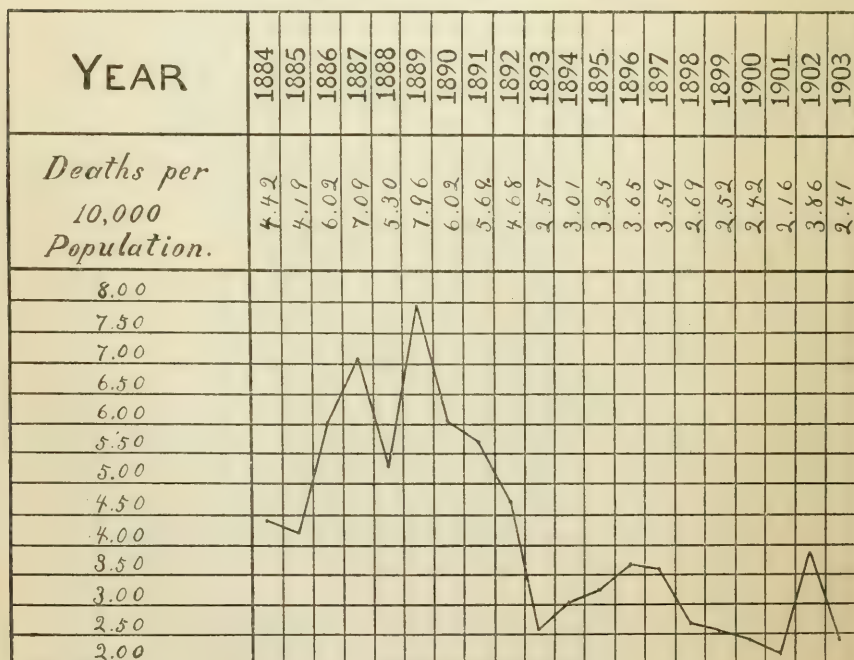 YEAR 1884 1885 1886 1887 1888 1889 1890 1891 1892 1893 1894 1895 1896 1897 1898 1899 1900 1901 1902 1903
Deaths per
10,000
Population.
4.42 4.19 6.02 7.09 5.30 7.96 6.02 5.69 4.68 2.57 3.01 3.25 3.65 3.59 2.69 2.52 2.42 2.16 3.86 2.41
8.00
7.50
7.00
6.50
6.00
5.50
5.00
4.50
4.00
3.50
3.00
2.50
2.00